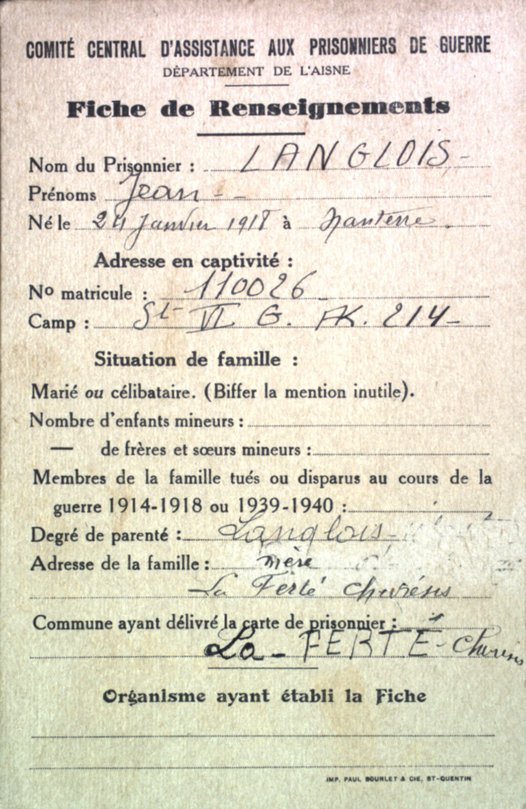 COMITÉ CENTRAL D'ASSISTANCE AUX PRISONNIERS DE GUERRE
DÉPARTEMENT DE L'AISNE
Fiche de Renseignements
Nom du Prisonnier : LANGLOIS
Prénoms Jean
Né le 24 Janvier 1918 à Nanterre
Adresse en captivité :
No matricule : 110026
Camp : St VI G. AK. 214
Situation de famille :
Marié ou célibataire. (Biffer la mention inutile).
Nombre d'enfants mineurs :
— de frères et sœurs mineurs :
Membres de la famille tués ou disparus au cours de la
guerre 1914-1918 ou 1939-1940 :
Degré de parenté : Langlois
Adresse de la famille : mère
La Ferté
Commune ayant délivré la carte de prisonnier :
La - FERTÉ -
Organisme ayant établi la Fiche
IMP. PAUL BOURLET & CIE, ST-QUENTIN